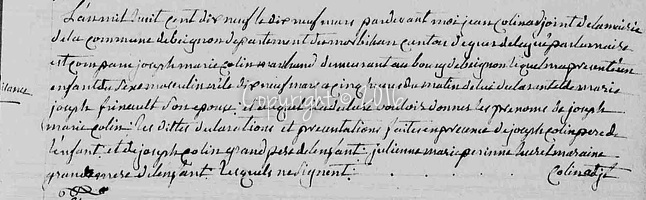 L'an mil huit cent dix neuf le dix neuf mars par devant moi jean colin adjoint de la mairie
de la commune de beignon departement du morbihan canton de guer delegué par le maire
est comparu joseph marie colin marchand demeurant au bourg de beignon lequel m'a presenté un
enfant du sexe masculin né le dix neuf mars a cinq heures du matin de lui declarant et de marie
joseph frinault son epouse et auquel a declaré vouloir donner les prenoms de joseph
marie colin les dittes declarations et presentations faites en presence de joseph colin pere de
l'enfant et de joseph colin grand pere de l'enfant julienne marie perinne maraine
grande mere de l'enfant lesquels ne signent
colin adjt
Copyright